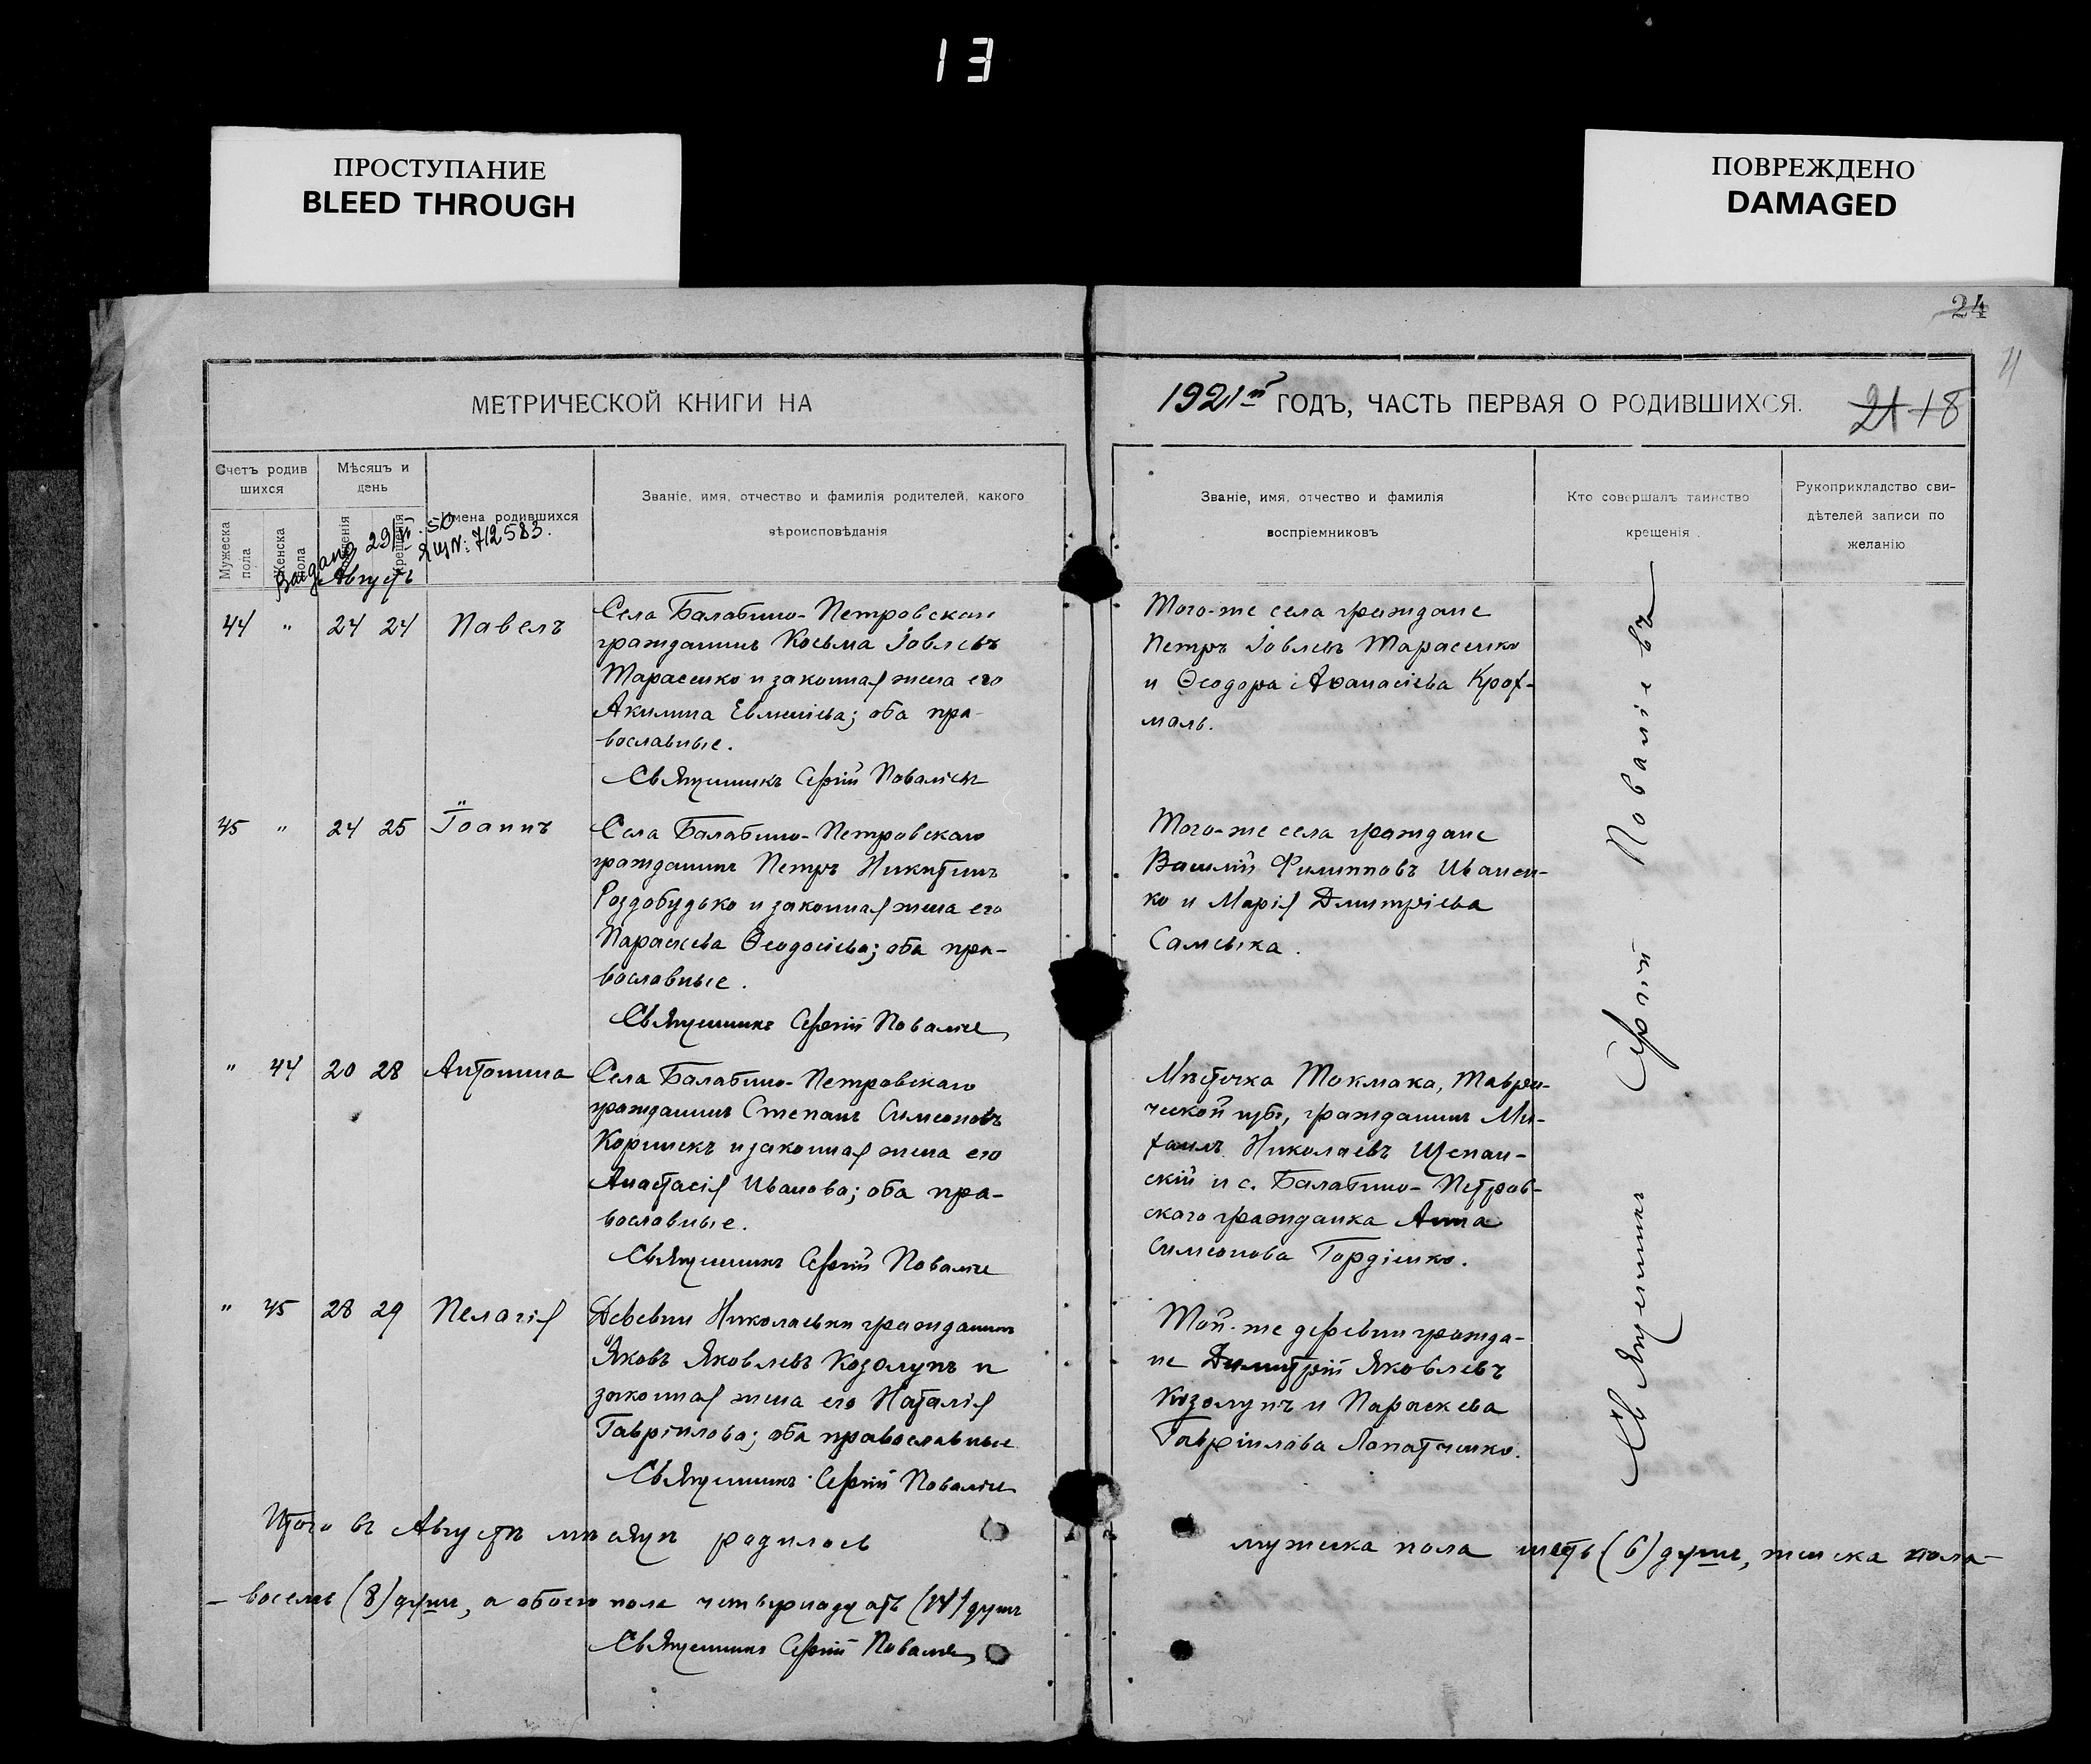 13
ПРОСТУПАНИЕ
BLEED THROUGH
ПОВРЕЖДЕНО
DAMAGED
24
11
МЕТРИЧЕСКОЙ КНИГИ НА
1921й ГОДЪ, ЧАСТЬ ПЕРВАЯ О РОДИВШИХСЯ.
21 18
Счетъ родив
шихся
Мужеска
пола
Женска
пола
Мѣсяцъ и
день
крещенія
Имена родившихся
29/VI. 50
№: 712583.
Августъ
Званіе, имя, отчество и фамилія родителей, какого
вѣроисповѣданія
Званіе, имя, отчество и фамилія
воспріемниковъ
Кто совершалъ таинство
крещенія.
Рукоприкладство сви-
дѣтелей записи по
желанію
44 " 24 24 Павелъ
Села Балабино-Петровскаго
гражданинъ Косьма Іовлевъ
Тарасенко и законная жена его
Акилина Евменіева; оба пра-
вославные.
Священникъ Сергій Поваліевъ
Того-же села граждане
Петръ Іовлевъ Тарасенко
и Ѳеодора Аѳанасіева Крох-
маль.
45 " 24 25 Іоаннъ
Села Балабино-Петровскаго
гражданинъ Петръ Никитинъ
Роздобудько и законная жена его
Параскева Ѳеодосіева; оба пра-
вославные.
Священникъ Сергій Поваліев
Того-же села граждане
Василій Филипповъ Иванен-
ко и Марія Димитріева
Самсыка.
" 44 20 28 Антонина
Села Балабино-Петровскаго
гражданинъ Стефанъ Симеоновъ
Коршекъ и законная жена его
Анастасія Иванова; оба пра-
вославные.
Священникъ Сергій Поваліев
Мѣстечка Токмака, Таври-
ческой губ., гражданинъ Ми-
хаилъ Николаевъ Щепан-
скій и с. Балабино-Петров-
скаго гражданка Анна
Симеонова Гордіенко.
" 45 28 29 Пелагія
Деревни Николаевки гражданинъ
Яковъ Яковлевъ Козолупъ и
законная жена его Наталія
Гавріилова; оба православные
Священникъ Сергій Поваліев
Той-же деревни гражда-
не Димитрій Яковлевъ
Козолупъ и Параскева
Гавріилова Лопатченко.
Священникъ Сергій Поваліевъ
Итого въ Августѣ мѣсяцѣ родилось мужеска пола шесть (6) душъ, женска пола-
- восемь (8) душъ, а обоего пола четырнадцать (14) душъ
Священникъ Сергій Поваліев